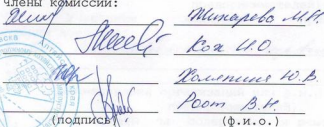 Члены комиссии:
Жинарева М.А.
Кох И.О.
Холякина Ю.В.
Роот В.Н.
(подпись) (ф.и.о.)